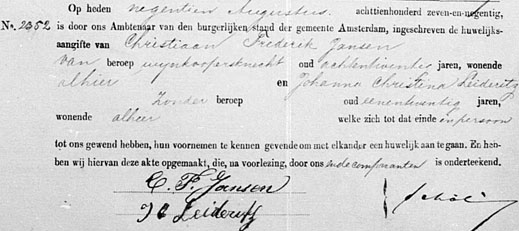 Op heden negentien Augustus achttienhonderd zeven-en-negentig,
No. 2352 is door ons Ambtenaar van den burgerlijken stand der gemeente Amsterdam, ingeschreven de huwelijks-
aangifte van Christiaan Frederik Jansen
van beroep wijnkoopersknecht oud achtentwintig jaren, wonende
alhier en Johanna Christina Leideritz
zonder beroep oud eenentwintig jaren,
wonende alhier welke zich tot dat einde in persoon
tot ons gewend hebben, hun voornemen te kennen gevende om met elkander een huwelijk aan te gaan. En heb-
ben wij hiervan deze akte opgemaakt, die, na voorlezing, door ons en de comparanten is onderteekend.
C. F. Jansen
J C Leideritz